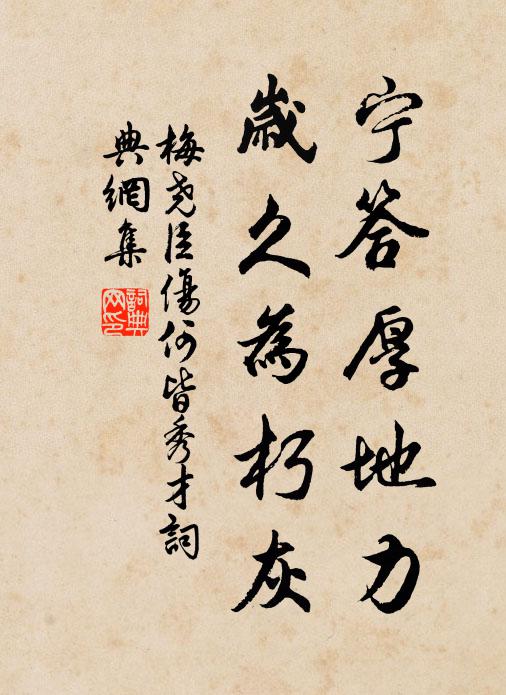 宁答厚地力
歲久為朽灰
梅堯臣傷何皆秀才詞
典網集
詞典網印